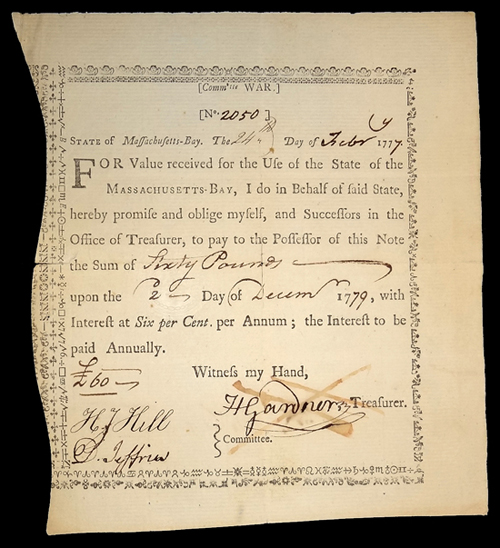 [Comm'tte WAR.]
[No. 2050]
STATE of Massachusetts-Bay. The 24th Day of Febry 1777.
FOR Value received for the Use of the State of the
MASSACHUSETTS-BAY, I do in Behalf of said State,
hereby promise and oblige myself, and Successors in the
Office of Treasurer, to pay to the Possessor of this Note
the Sum of Sixty Pounds
upon the 2 Day of Decemr 1779, with
Interest at Six per Cent. per Annum; the Interest to be
paid Annually.
£60 Witness my Hand,
H Gardner Treasurer.
Hill
D. Jeffries } Committee.